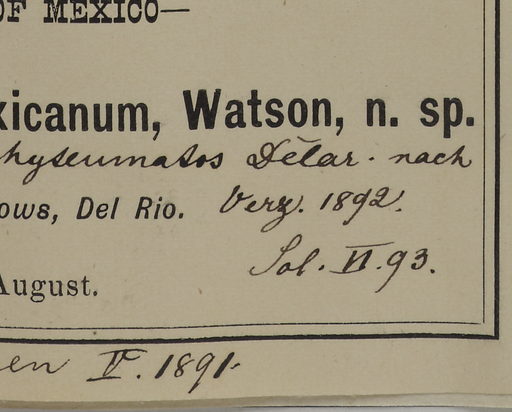 OF MEXICO—
xicanum, Watson, n. sp.
hyteumatos Délar. nach
ows, Del Rio. Verz. 1892.
Sol. VI. 93.
August.
en IV. 1891.